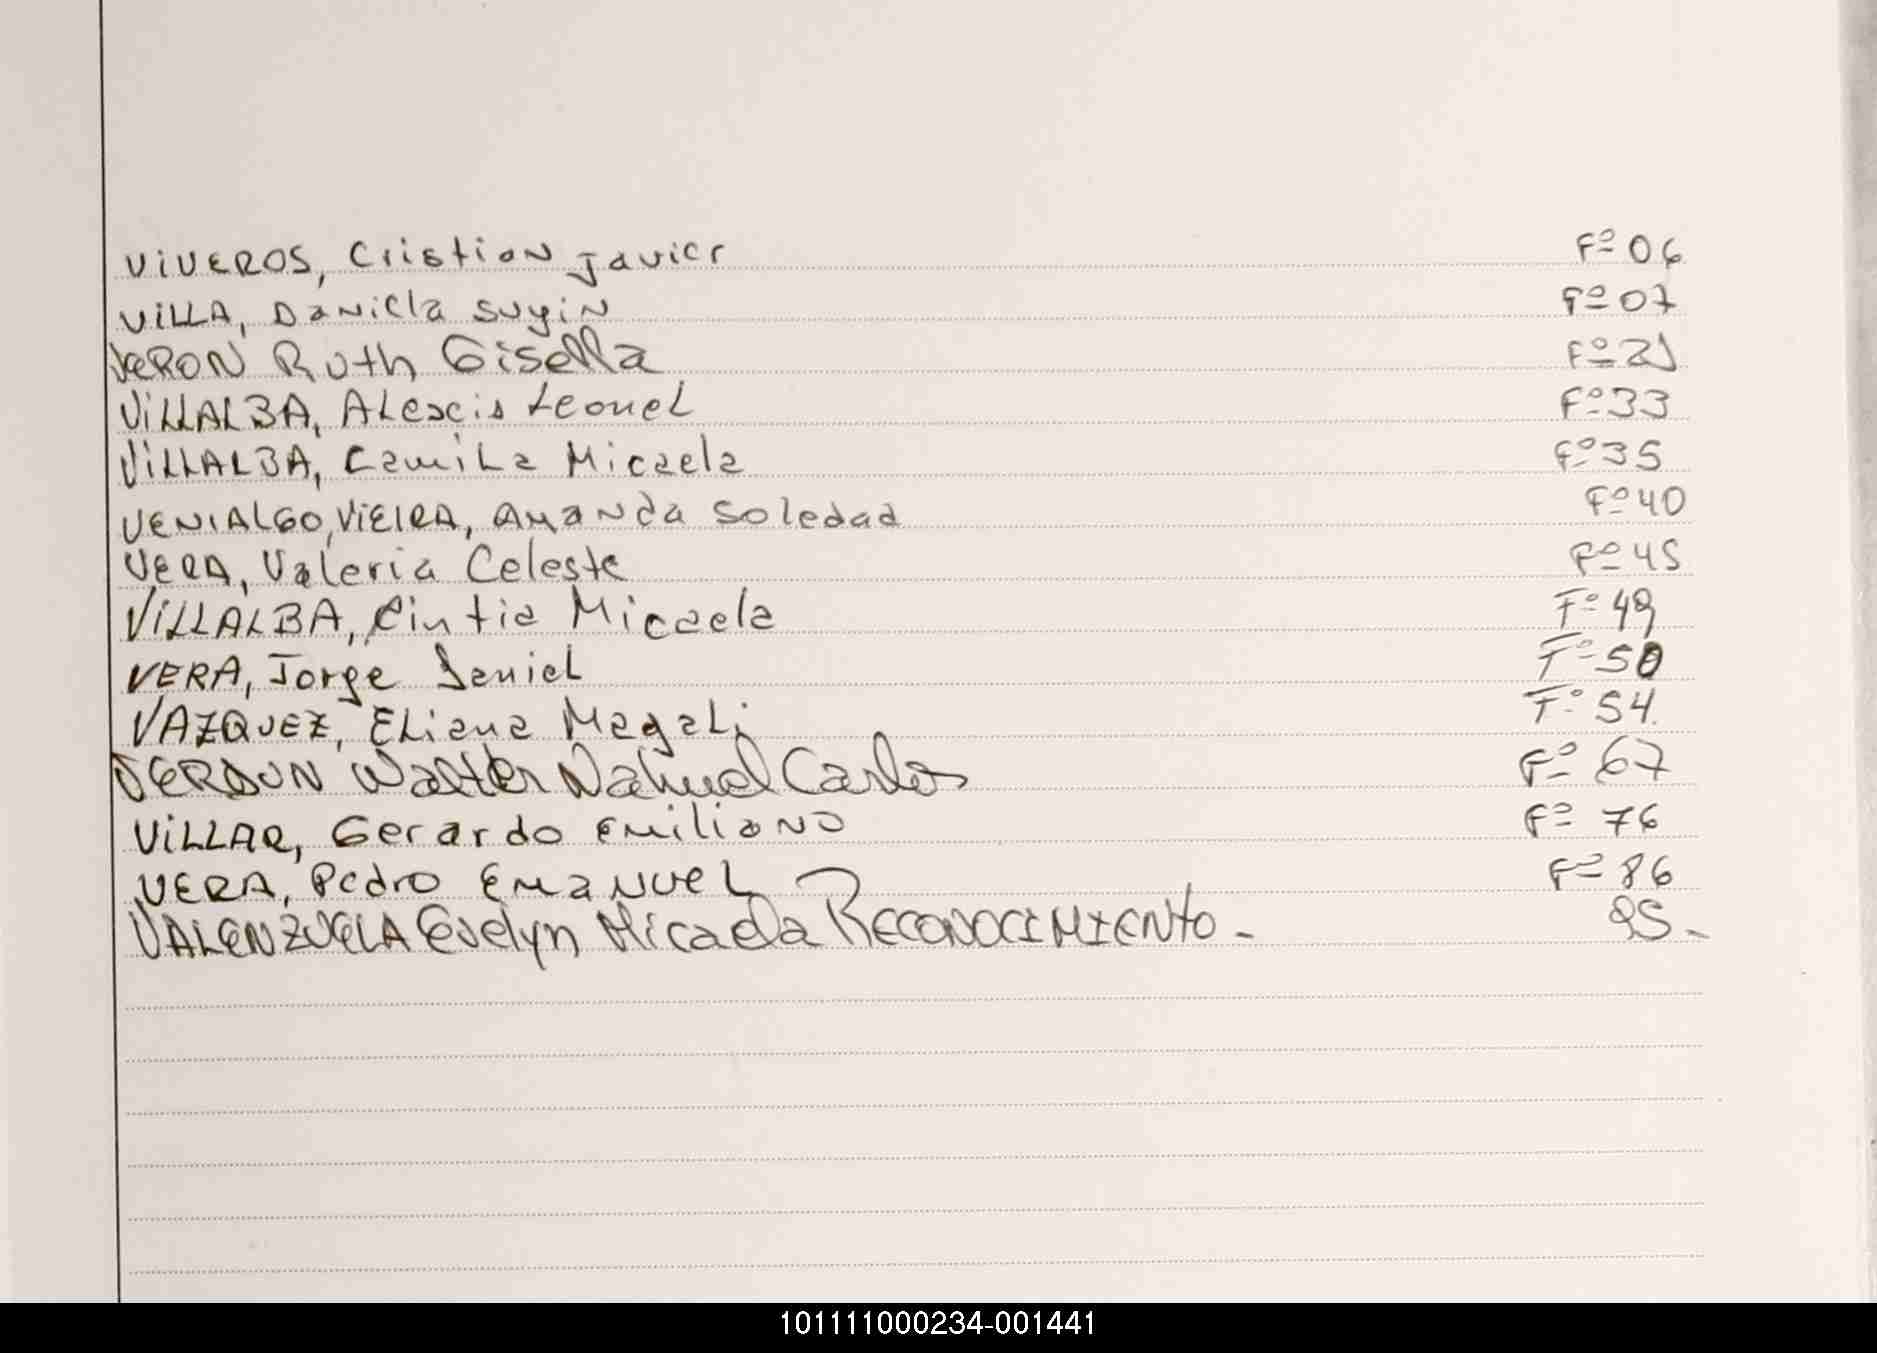 VIVEROS, Cristian Javier Fº 06
VILLA, Daniela Suyin Fº 07
VERON Ruth Gisella Fº 21
VILLALBA, Alexis Leonel Fº 33
VILLALBA, Camila Micaela Fº 35
VENIALGO, VIEIRA, Amanda Soledad Fº 40
VERA, Valeria Celeste Fº 45
VILLALBA, Cintia Micaela Fº 49
VERA, Jorge Daniel Fº 50
VAZQUEZ, Eliana Magali Fº 54
VERDUN Walter Nahuel Carlos Fº 67
VILLAR, Gerardo Emiliano Fº 76
VERA, Pedro Emanuel Fº 86
VALENZUELA Evelyn Micaela RECONOCIMIENTO. 95.
101111000234-001441